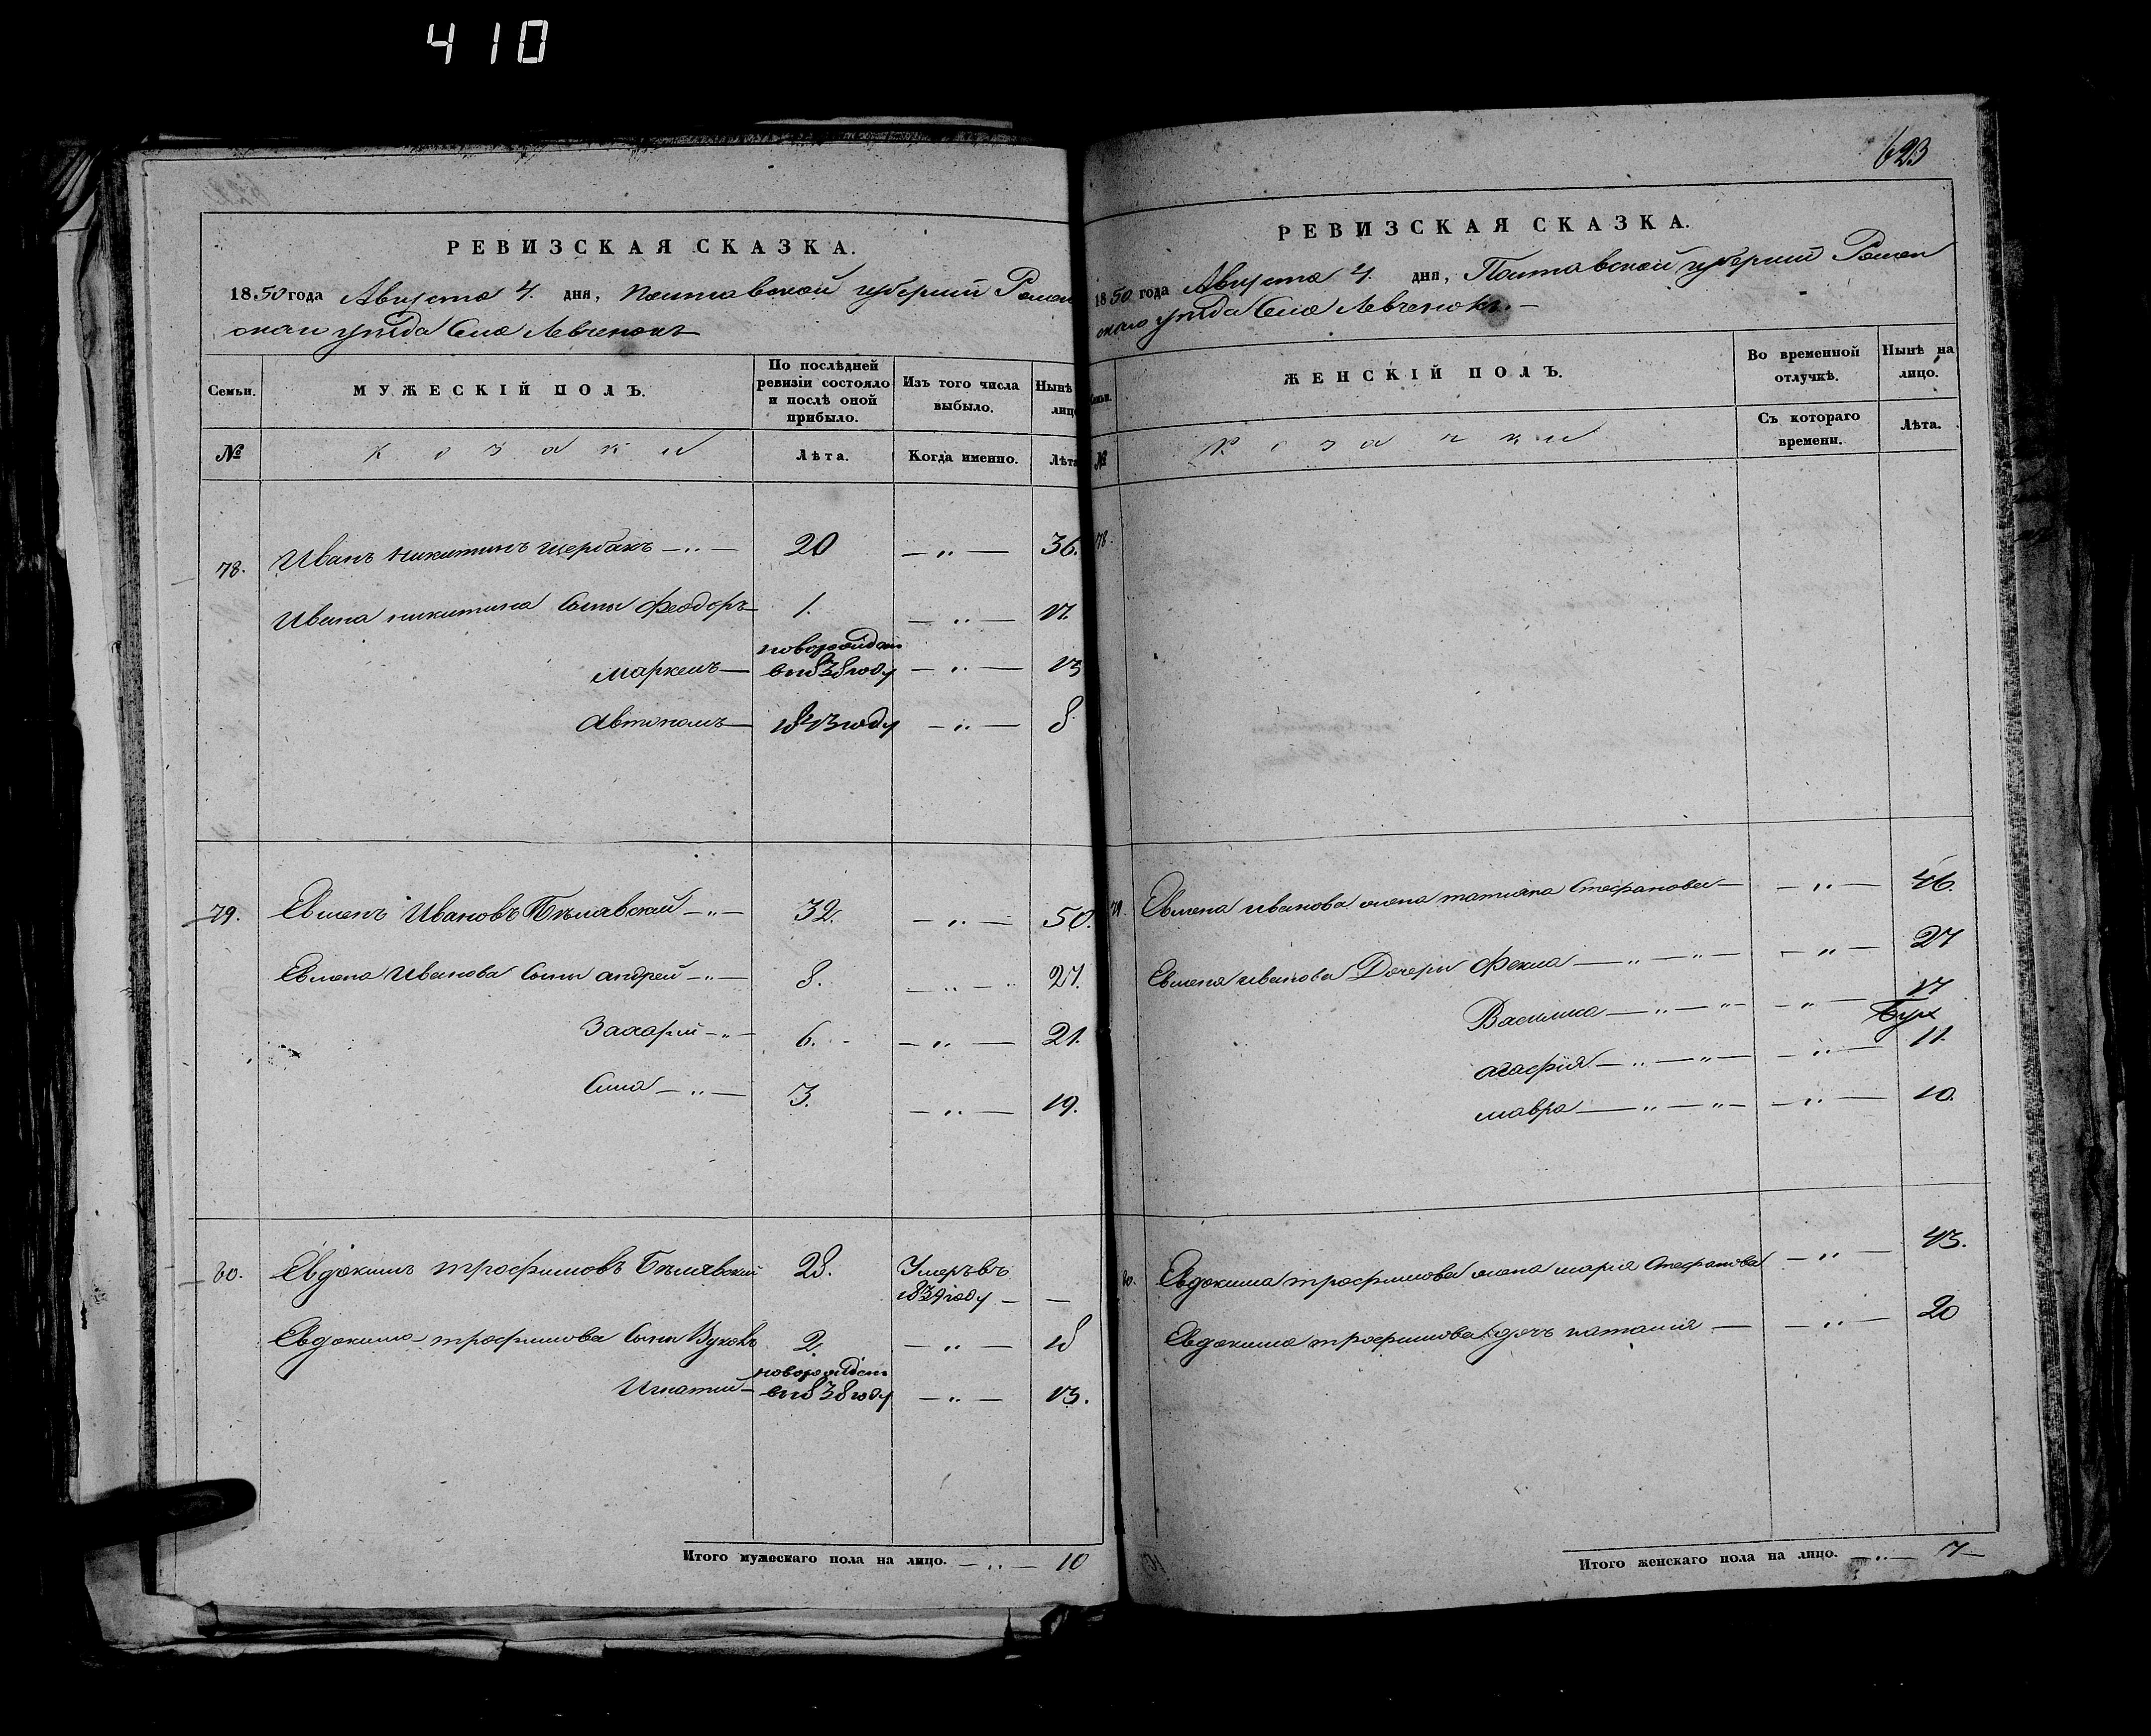 410
РЕВИЗСКАЯ СКАЗКА.
1850 года Августа 4. дня, Полтавской губерніи Ромен
скаго уѣзда Села Левченокъ
Семьи. МУЖЕСКІЙ ПОЛЪ. По послѣдней ревизіи состояло и послѣ оной прибыло. Изъ того числа выбыло. Нынѣ лицо
№ Козаки Лѣта. Когда именно. Лѣта
78. Иванъ Никитинъ Щербакъ 20 36.
Ивана Никитина Сыны Феодоръ 1. 17.
новорожден
Маркелъ в 1838 году 13
Автономъ 1843 году 8
79. Евменъ Ивановъ Бѣлявский 32. 50.
Евмена Иванова Сыны Андрей 8. 27.
Захарій 6. 21.
Сила 3. 19.
80. Евдокимъ Трофимовъ Бѣлявский 28. Умеръ въ
1839 году
Евдокима Трофимова Сыны Вуколъ 2. 18
новорожден
Игнатий в 1838 году 13.
Итого мужескаго пола на лицо. 10
623
РЕВИЗСКАЯ СКАЗКА.
1850 года Августа 4. дня, Полтавской губерніи Ромен
скаго уѣзда Села Левченокъ.
Семьи. ЖЕНСКІЙ ПОЛЪ. Во временной отлучкѣ. Нынѣ на лицо.
№ Козачки Съ котораго времени. Лѣта.
78
79. Евмена Иванова жена Татияна Стефанова 46.
Евмена Иванова Дочери Фекла 27
Василиса 17
Агафія 11.
Мавра 10.
80. Евдокима Трофимова жена Марія Стефанова 43.
Евдокима Трофимова дочь Наталия 20
Итого женскаго пола на лицо. 7